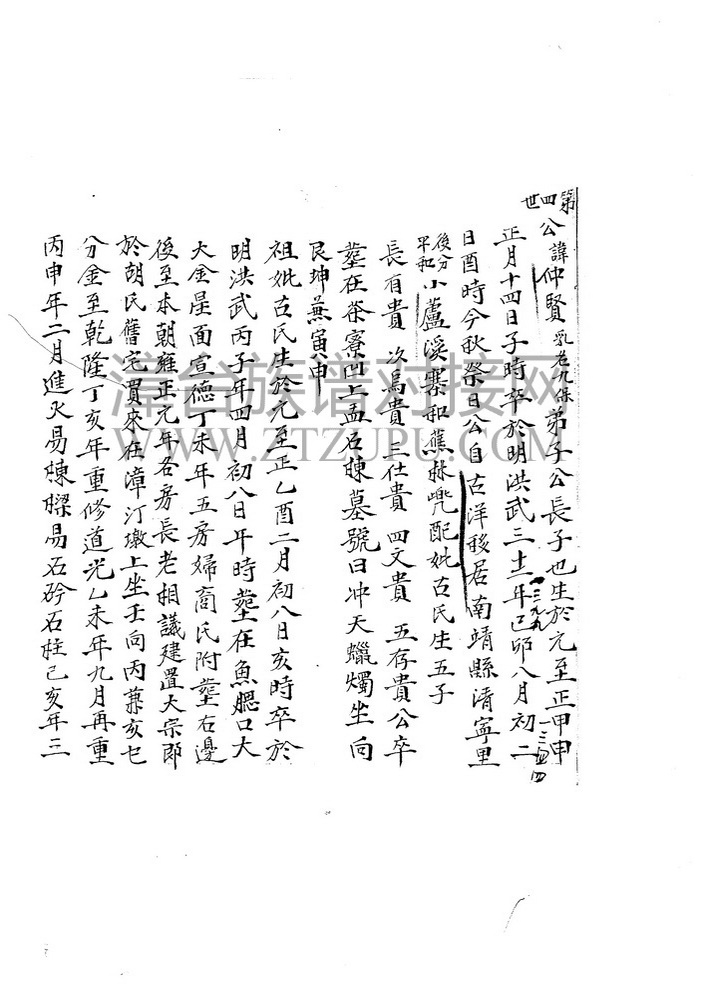 第四世
公諱仲賢乳名九保弟子公長子也生於元至正甲申 一三四四
正月十四日子時卒於明洪武三十二年己卯八月初二 一三九九
日酉時今秋祭日公自古洋移居南靖縣清寧里
後分平和小蘆溪寨和蕉林兠配妣古氏生五子
長有貴 次烏貴 三仕貴 四文貴 五存貴公卒
塟在茶寮凹上孟石棟墓號曰冲天蠟燭坐向
艮坤兼寅申
祖妣古氏生於元至正乙酉二月初八日亥時卒於
明洪武丙子年四月初八日午時塟在魚腮口大
大金星面宣德丁未年五房婦商氏附塟右邊
後至本朝雍正元年各房長老相議建置大宗即
於胡氏舊宅買來在漳汀墩上坐壬向丙兼亥巳
分金至乾隆丁亥年重修道光乙未年九月再重
丙申年二月進火易棟樑易石砛石柱己亥年三
漳台族谱对接网
WWW.ZTZUPU.COM